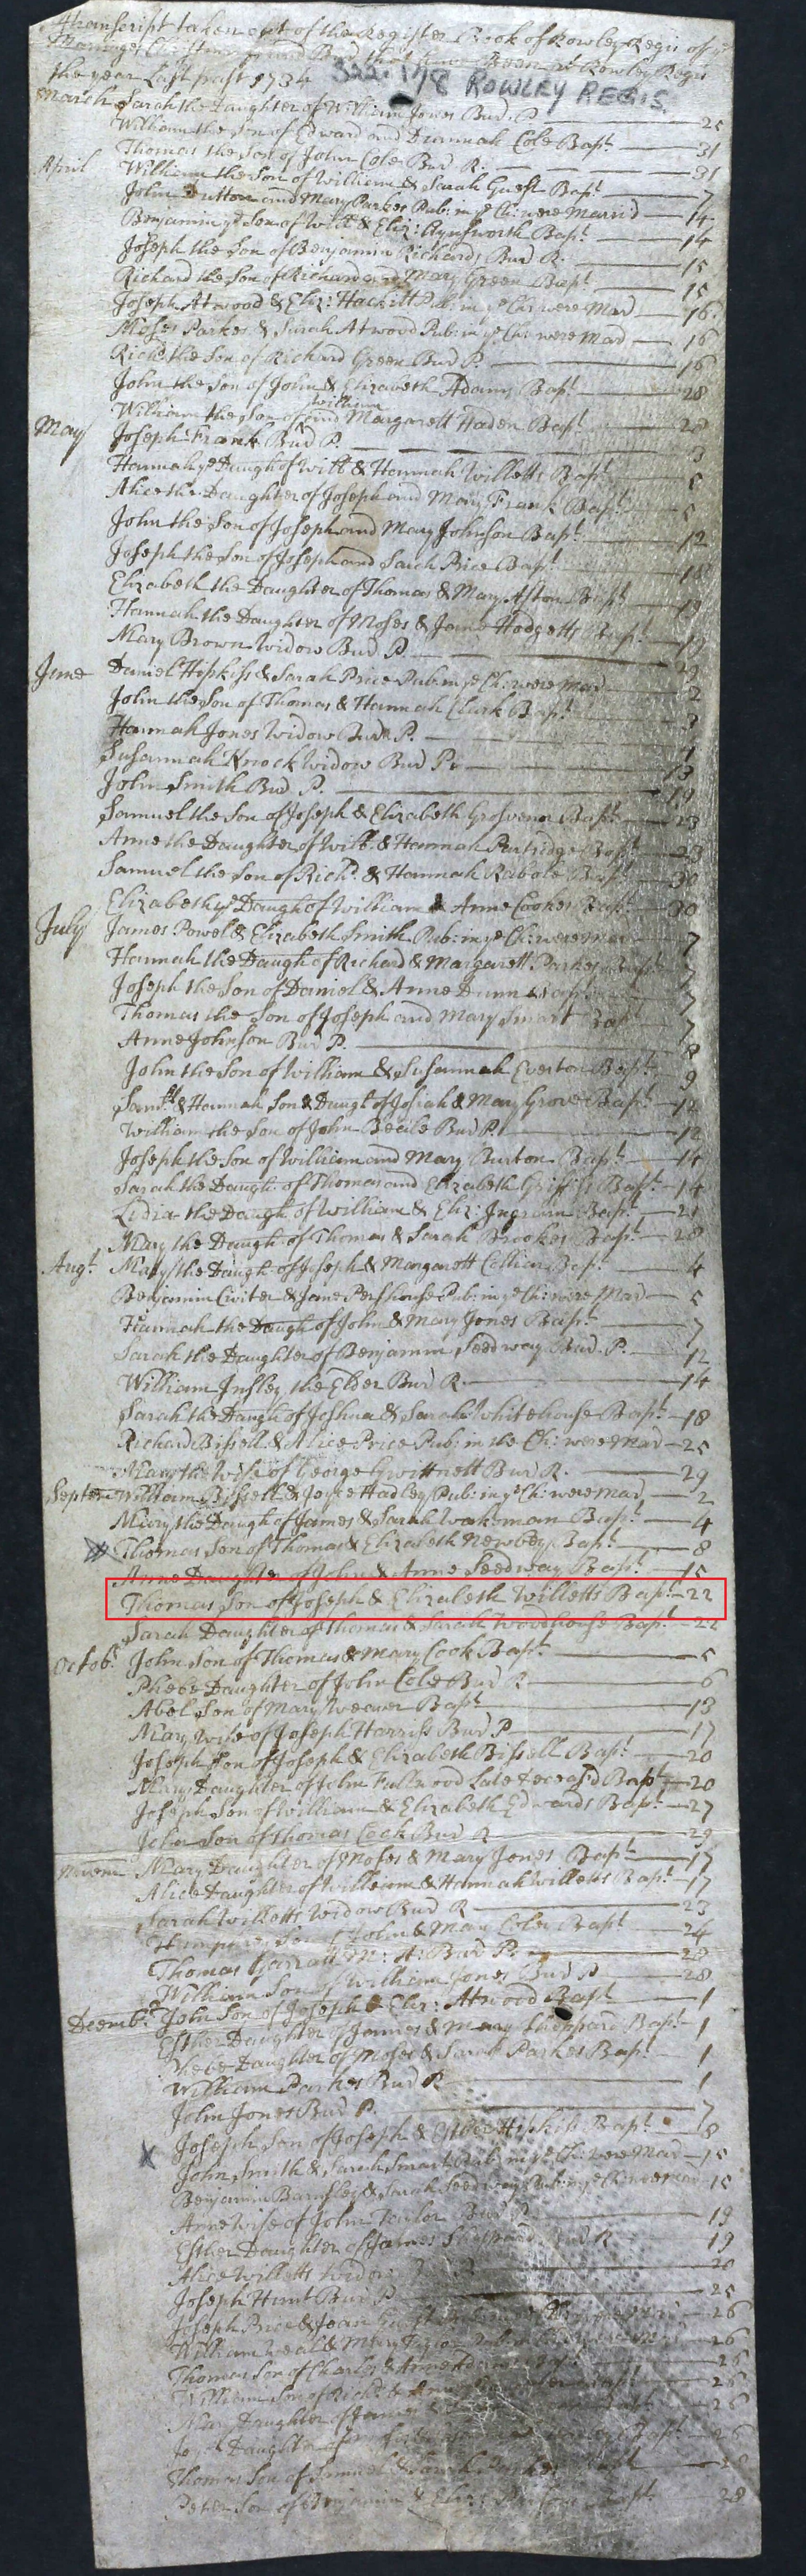 A transcript taken out of the Register Book of Rowley Regis of
Marriages
the year Last past 1734
322.178 ROWLEY REGIS.
March Sarah the Daughter of William Jones Bud. P. 25
William the Son of Edward and Diannah Cole Bapt. 31
Thomas the Son of John Cole Bud R. 31
April William the Son of William & Sarah Guest Bapt. 7
John Dutton and Mary Parkes Pub: in ye Ch: were Marrid 14
Benjamin ye Son of Will & Eliz: Aynsworth Bapt. 14
Joseph the Son of Benjamin Richards Bud R. 15
Richard the Son of Richard and Mary Green Bapt. 15
Joseph Atwood & Eliz: Hackitt Pub: in ye Ch: were Mard 16
Moses Parkes & Sarah Atwood Pub: in ye Ch: were Mard 16
Richd. the Son of Richard Green Bud P. 16
John the Son of John & Elizabeth Adams Bapt. 28
William the Son of William and Margarett Haden Bapt. 28
May Joseph Frank Bud P. 3
Hannah ye Daugh of Will & Hannah Willetts Bapt. 5
Alice the Daughter of Joseph and Mary Frank Bapt. 5
John the Son of Joseph and Mary Johnson Bapt. 12
Joseph the Son of Joseph and Sarah Price Bapt.
Elizabeth the Daughter of Thomas & Mary Aston Bapt. 19
Hannah the Daughter of Moses & Jane Hodgetts Bapt. 19
Mary Brown Widow Bud P. 29
June Daniel Hipkiss & Sarah Price Pub: in ye Ch: were Mard 2
John the Son of Thomas & Hannah Clark Bapt. 3
Hannah Jones Widow Bud P.
Susannah Knock Widow Bud P. 13
John Smith Bud P. 19
Samuel the Son of Joseph & Elizabeth Grosvenor Bapt. 23
Anne the Daughter of Will. & Hannah Partridge Bapt. 23
Samuel the Son of Richd. & Hannah Rabole Bapt. 30
Elizabeth ye Daugh of William & Anne Cookes Bapt. 30
July James Powel & Elizabeth Smith Pub: in ye Ch: were Mar 7
Hannah the Daugh of Richard & Margarett Parkes Bapt 7
Joseph the Son of Daniel & Anne Dunn Bapt 7
Thomas the Son of Joseph and Mary Smart Bapt 7
Anne Johnson Bud P. 8
John the Son of William & Susannah Everton Bapt. 9
Samll. & Hannah Son & Daugt of Josiah & Mary Grove Bapt. 12
William the Son of John Becile Bud P. 12
Joseph the Son of William and Mary Burton Bapt. 14
Sarah the Daugh. of Thomas and Elizabeth Griffis Bapt. 14
Lidia the Daugh of William & Eliz: Ingram Bapt. 21
Mary the Daugh of Thomas & Sarah Brookes Bapt. 28
Augt. Mary the Daugh of Joseph & Margarett Collier Bapt. 4
Benjamin Civiter & Jane Pershouse Pub: in ye Ch: were Mard 5
Hannah the Daugh of John & Mary Jones Bapt. 7
Sarah the Daughter of Benjamin Seedway Bud. P. 12
William Insley the Elder Bud R. 14
Sarah the Daugh of Joshua & Sarah Whitehouse Bapt. 18
Richard Bissell & Alice Price Pub: in the Ch: were Mard 25
Mary the Wife of George Gwittnett Bud R. 29
Septem William Bissell & Joyce Hadley Pub: in ye Ch: were Mard 2
Mary the Daugh of James & Sarah Wakeman Bapt. 4
Thomas Son of Thomas & Elizabeth Newbey Bapt. 8
Anne Daughter of John & Anne Seedway Bapt. 15
Thomas Son of Joseph & Elizabeth Willetts Bapt. 22
Sarah Daughter of Thomas & Sarah Woodhouse Bapt. 22
Octobr. John Son of Thomas & Mary Cook Bapt. 5
Phebe Daughter of John Cole Bud R 6
Abel Son of Mary Weaver Bapt 13
Mary Wife of Joseph Harriss Bud P 17
Joseph Son of Joseph & Elizabeth Bissell Bapt. 20
Mary Daughter of John Fullwood Late deceasd Bapt. 20
Joseph Son of William & Elizabeth Edwards Bapt. 27
John Son of Thomas Cook Bud R 29
Novem Mary Daughter of Moses & Mary Jones Bapt. 17
Alice Daughter of William & Hannah Willetts Bapt. 17
Sarah Willetts Widow Bud R 23
Son of John & Mary Coley Bapt 24
Thomas Garratt M: A: Bud P. 28
William Son of William Jones Bud P 28
Decembr. John Son of Joseph & Eliz: Atwood Bapt 1
Esther Daughter of James & Mary Sheppard Bapt. 1
Phebe Daughter of Moses & Sarah Parkes Bapt. 1
William Parkes Bud R 1
John Jones Bud P. 7
Joseph Son of Joseph & Esther Hipkiss Bapt. 8
John Smith & Sarah Smart Pub: in ye Ch: were Mar 15
Benjamin Barnsley & Sarah Seedway Pub: in ye Ch: were Mar 15
Anne Wife of John Taylor Bud R. 19
Esther Daughter of James Sheppard Bud R 19
Alice Willetts Widow 20
Joseph Hunt Bud P 25
Joseph Price & Joan 26
William Veal & Mary 26
Thomas Son of Charles & Anne 26
William Son of Richd. & 26
Mary Daughter of James 26
Daughter of 26
Thomas Son of Samuel & Sarah
Peter Son of Benjamin & Eliz: Bapt. 28